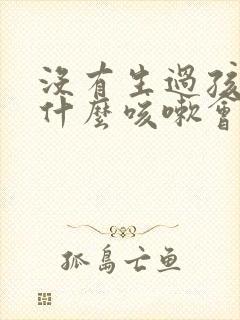 沒有生過孩
什麼咳嗽會
孤島亡鱼